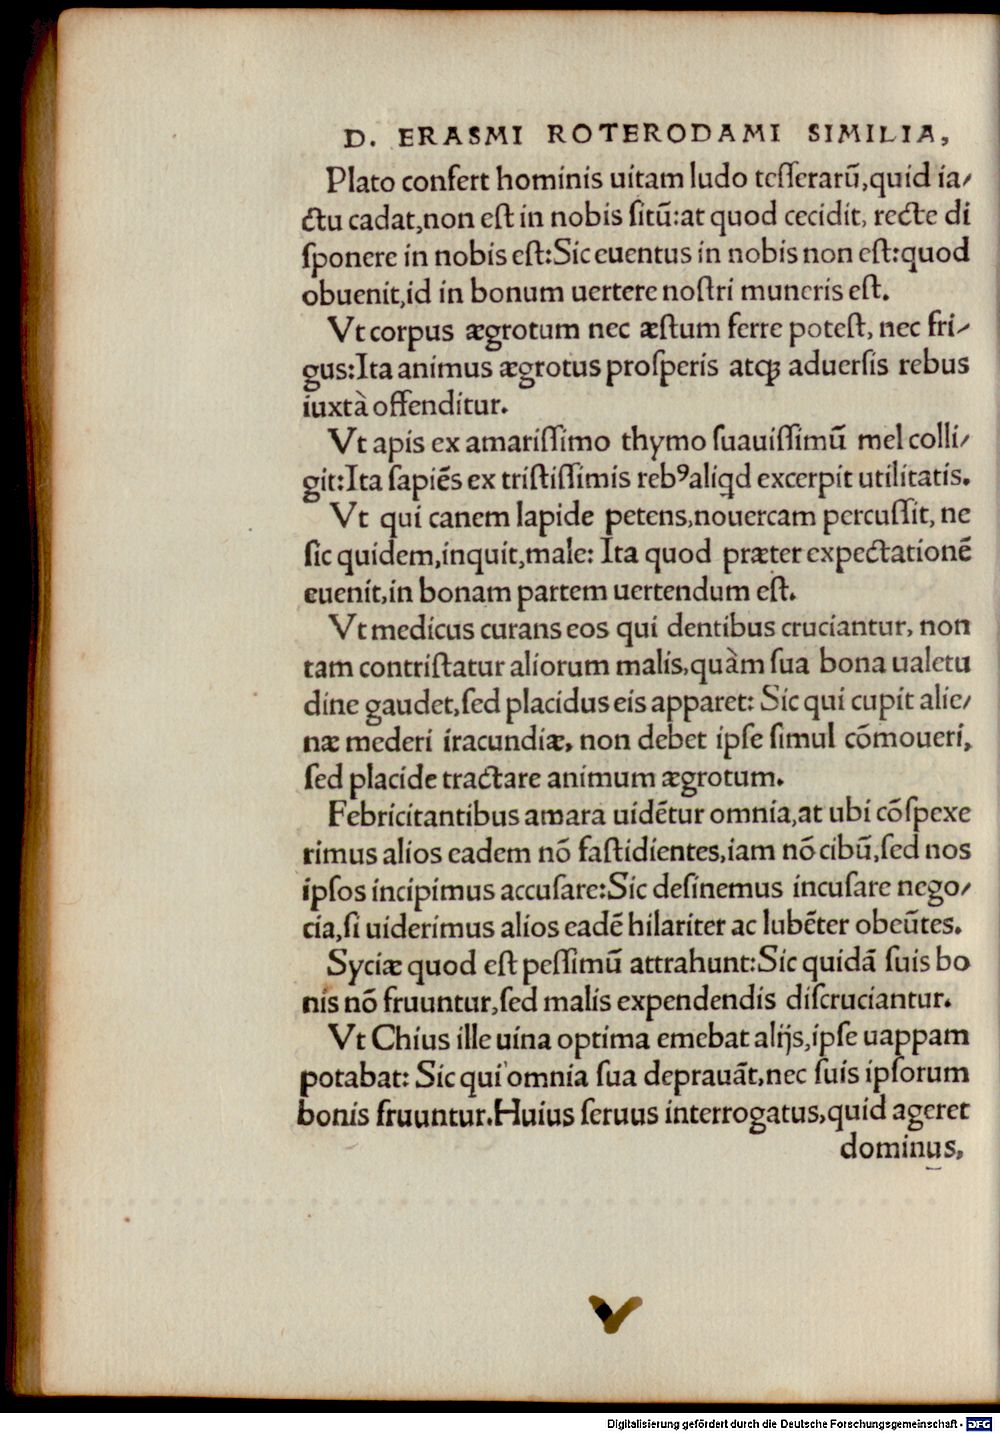 D. ERASMI ROTERODAMI SIMILIA,
Plato confert hominis uitam ludo teſſerarū,quid ia/
ctu cadat,non eſt in nobis ſitū:at quod cecidit, recte di
ſponere in nobis eſt:Sic euentus in nobis non eſt:quod
obuenit,id in bonum uertere noſtri muneris eſt.
Vt corpus ægrotum nec æſtum ferre poteſt, nec fri/
gus:Ita animus ægrotus proſperis atqꝫ aduerſis rebus
iuxtà offenditur.
Vt apis ex amariſſimo thymo ſuauiſſimū mel colli/
git:Ita ſapiēs ex triſtiſſimis rebꝰ aliqd excerpit utilitatis.
Vt qui canem lapide petens,nouercam percuſſit, ne
ſic quidem,inquit,male: Ita quod præter expectationē
euenit,in bonam partem uertendum eſt.
Vt medicus curans eos qui dentibus cruciantur, non
tam contriſtatur aliorum malis,quàm ſua bona ualetu
dine gaudet,ſed placidus eis apparet: Sic qui cupit alie/
næ mederi iracundiæ, non debet ipſe ſimul cōmoueri,
ſed placide tractare animum ægrotum.
Febricitantibus amara uidētur omnia,at ubi cōſpexe
rimus alios eadem nō faſtidientes,iam nō cibū,ſed nos
ipſos incipimus accuſare:Sic deſinemus incuſare nego/
cia,ſi uiderimus alios eadē hilariter ac lubēter obeūtes.
Syciæ quod eſt peſſimū attrahunt:Sic quidā ſuis bo
nis nō fruuntur,ſed malis expendendis diſcruciantur.
Vt Chius ille uina optima emebat alijs,ipſe uappam
potabat: Sic qui omnia ſua deprauāt,nec ſuis ipſorum
bonis fruuntur.Huius ſeruus interrogatus,quid ageret
dominus,
Digitalisierung gefördert durch die Deutsche Forschungsgemeinschaft - DFG